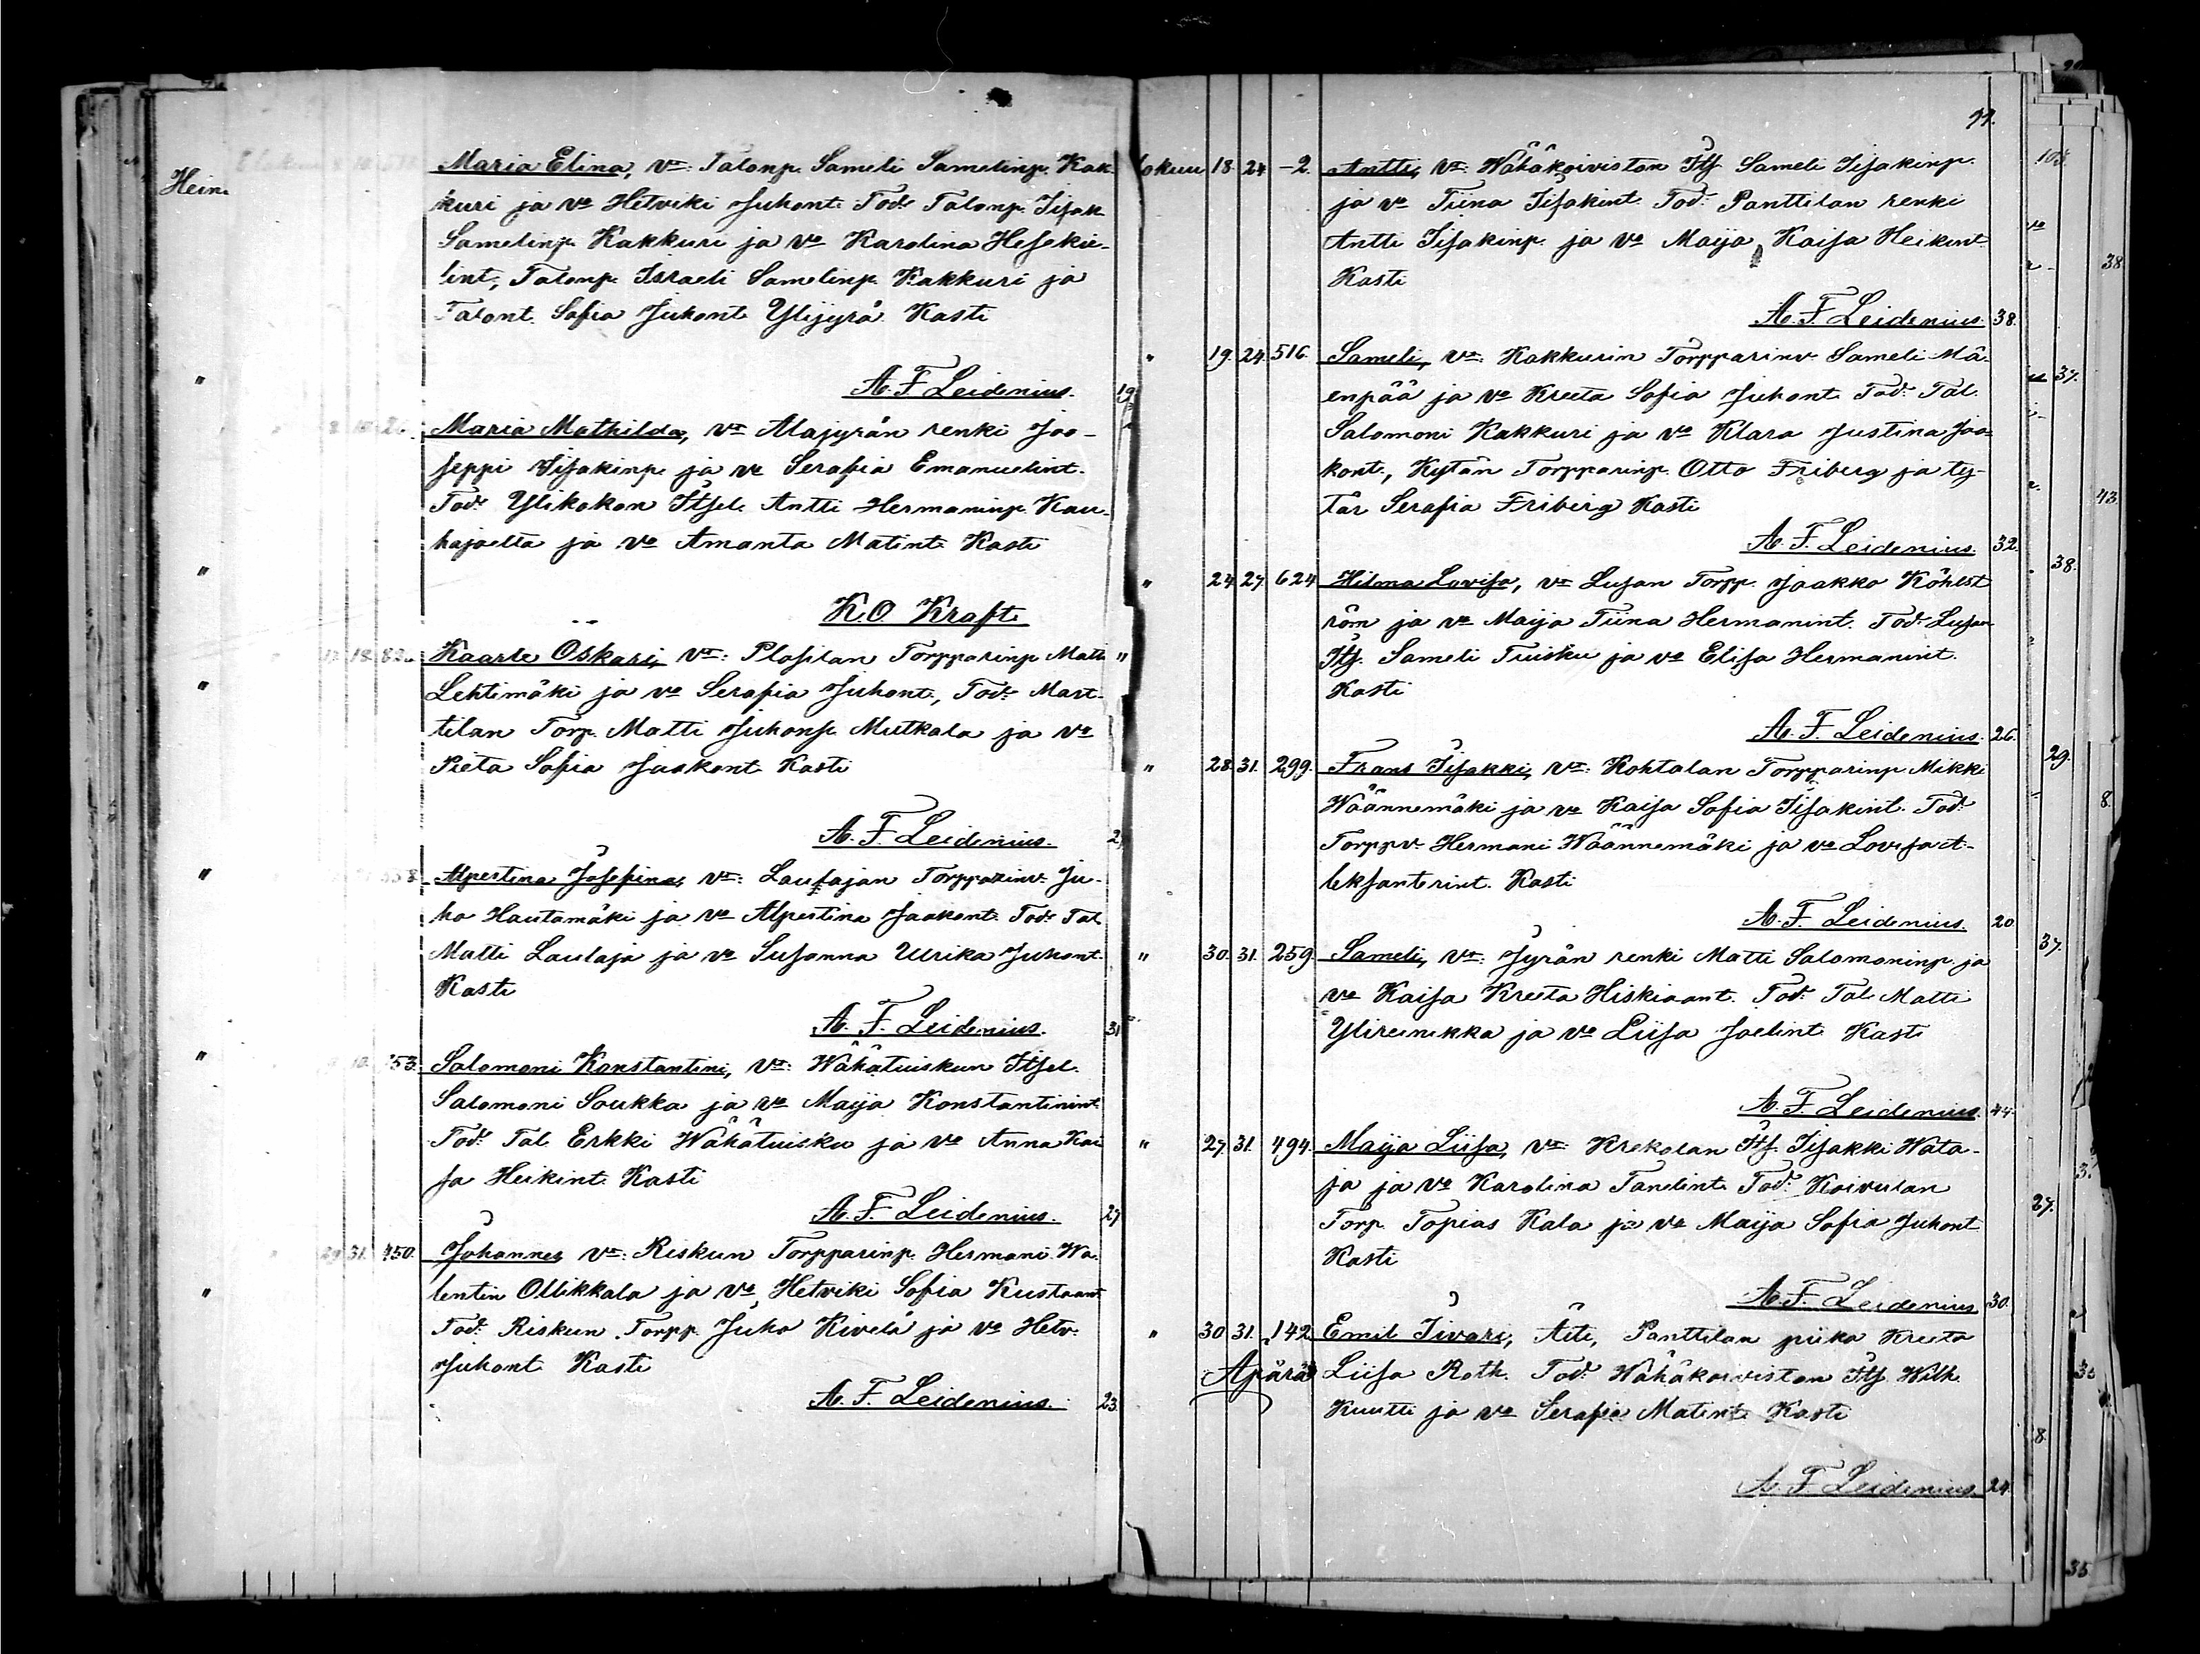 Maria Elina, va: Talonp. Sameli Samelinp. Kak-
kuri ja vo Hetviki Juhont. Tod: Talonp. Iisak
Samelinp. Kakkuri ja vo Karolina Hesekie-
lint., Talonp. Israeli Samelinp. Kakkuri ja
Talont. Sofia Juhont. Ylijyrä. Kasti
A. F. Leidenius. 19
Hein.
Maria Mathilda, va Alajyrän renki Joo-
seppi Iisakinp. ja vo Serafia Emanuelint.
Tod: Ylikokon Itsel. Antti Hermaninp. Kau-
hajoelta ja vo Amanta Matint. Kasti
K. O. Kraft.
Kaarle Oskari, va: Plosilan Torpparinp. Matti
Lehtimäki ja vo Serafia Juhont., Tod: Mart-
tilan Torp. Matti Juhonp. Mutkala ja vo
Pieta Sofia Jaakont. Kasti
A. F. Leidenius.
Alpertina Josefina, va: Laulajan Torpparinv. Ju-
ho Hautamäki ja vo Alpertina Jaakont. Tod: Tal.
Matti Laulaja ja vo Susanna Ulrika Juhont.
Kasti
A. F. Leidenius. 31
Salomoni Konstantini, va: Wähätuiskun Itsel.
Salomoni Soukka ja vo Maija Konstantinint.
Tod: Tal. Erkki Wähätuisku ja vo Anna Kai
sa Heikint. Kasti
A. F. Leidenius. 27
31. 450. Johannes va: Riskun Torpparinp. Hermani Wa-
lentin Ollikkala ja vo Hetviki Sofia Kustaant.
Tod: Riskun Torpp. Juho Kivelä ja vo Hetv.
Juhont. Kasti
A. F. Leidenius. 23.
lokuu 18. 24 -2. Antti, va: Wähäkoiviston Its. Sameli Iisakinp.
ja vo Tiina Iisakint. Tod: Panttilan renki
Antti Iisakinp. ja vo Maija Kaisa Heikint.
Kasti
A. F. Leidenius. 38.
" 19. 24. 516. Sameli, va: Kakkurin Torpparinv. Sameli Mä-
enpää ja vo Kreeta Sofia Juhont. Tod: Tal.
Salomoni Kakkuri ja vo Klara Justina Jaa-
kont., Kytän Torpparinp. Otto Friberg ja ty-
tär Serafia Friberg Kasti
A. F. Leidenius. 32.
" 24. 27. 624 Hilma Lovisa, va Lusan Torpp. Jaakko Köhlst
röm ja vo Maija Tiina Hermanint. Tod: Lusan
Its. Sameli Tuisku ja vo Elisa Hermanint.
Kasti
A. F. Leidenius. 26.
" 28. 31. 299. Frans Iisakki, va: Kohtalan Torpparinp. Mikki
Wäännemäki ja vo Kaisa Sofia Iisakint. Tod:
Torppv. Hermani Wäännemäki ja vo Lovisa A-
leksanterint. Kasti
A. F. Leidenius. 20
" 30. 31. 259 Sameli, va: Jyrän renki Matti Salomoninp. ja
vo Kaisa Kreeta Hiskiaant. Tod: Tal. Matti
Ylireinikka ja vo Liisa Joelint. Kasti
A. F. Leidenius. 44.
" 27. 31. 494. Maija Liisa, va: Krekolan Its. Iisakki Wata-
ja ja vo Karolina Tanelint. Tod: Koivulan
Torp. Topias Kala ja vo Maija Sofia Juhont.
Kasti
A. F. Leidenius 30.
" 30 31. 142 Emil Iivari, Äiti, Panttilan piika Kreeta
Äpärä Liisa Roth. Tod: Wähäkoiviston Its. Wilh.
Kuutti ja vo Serafia Matint. Kasti
A. F. Leidenius. 24.